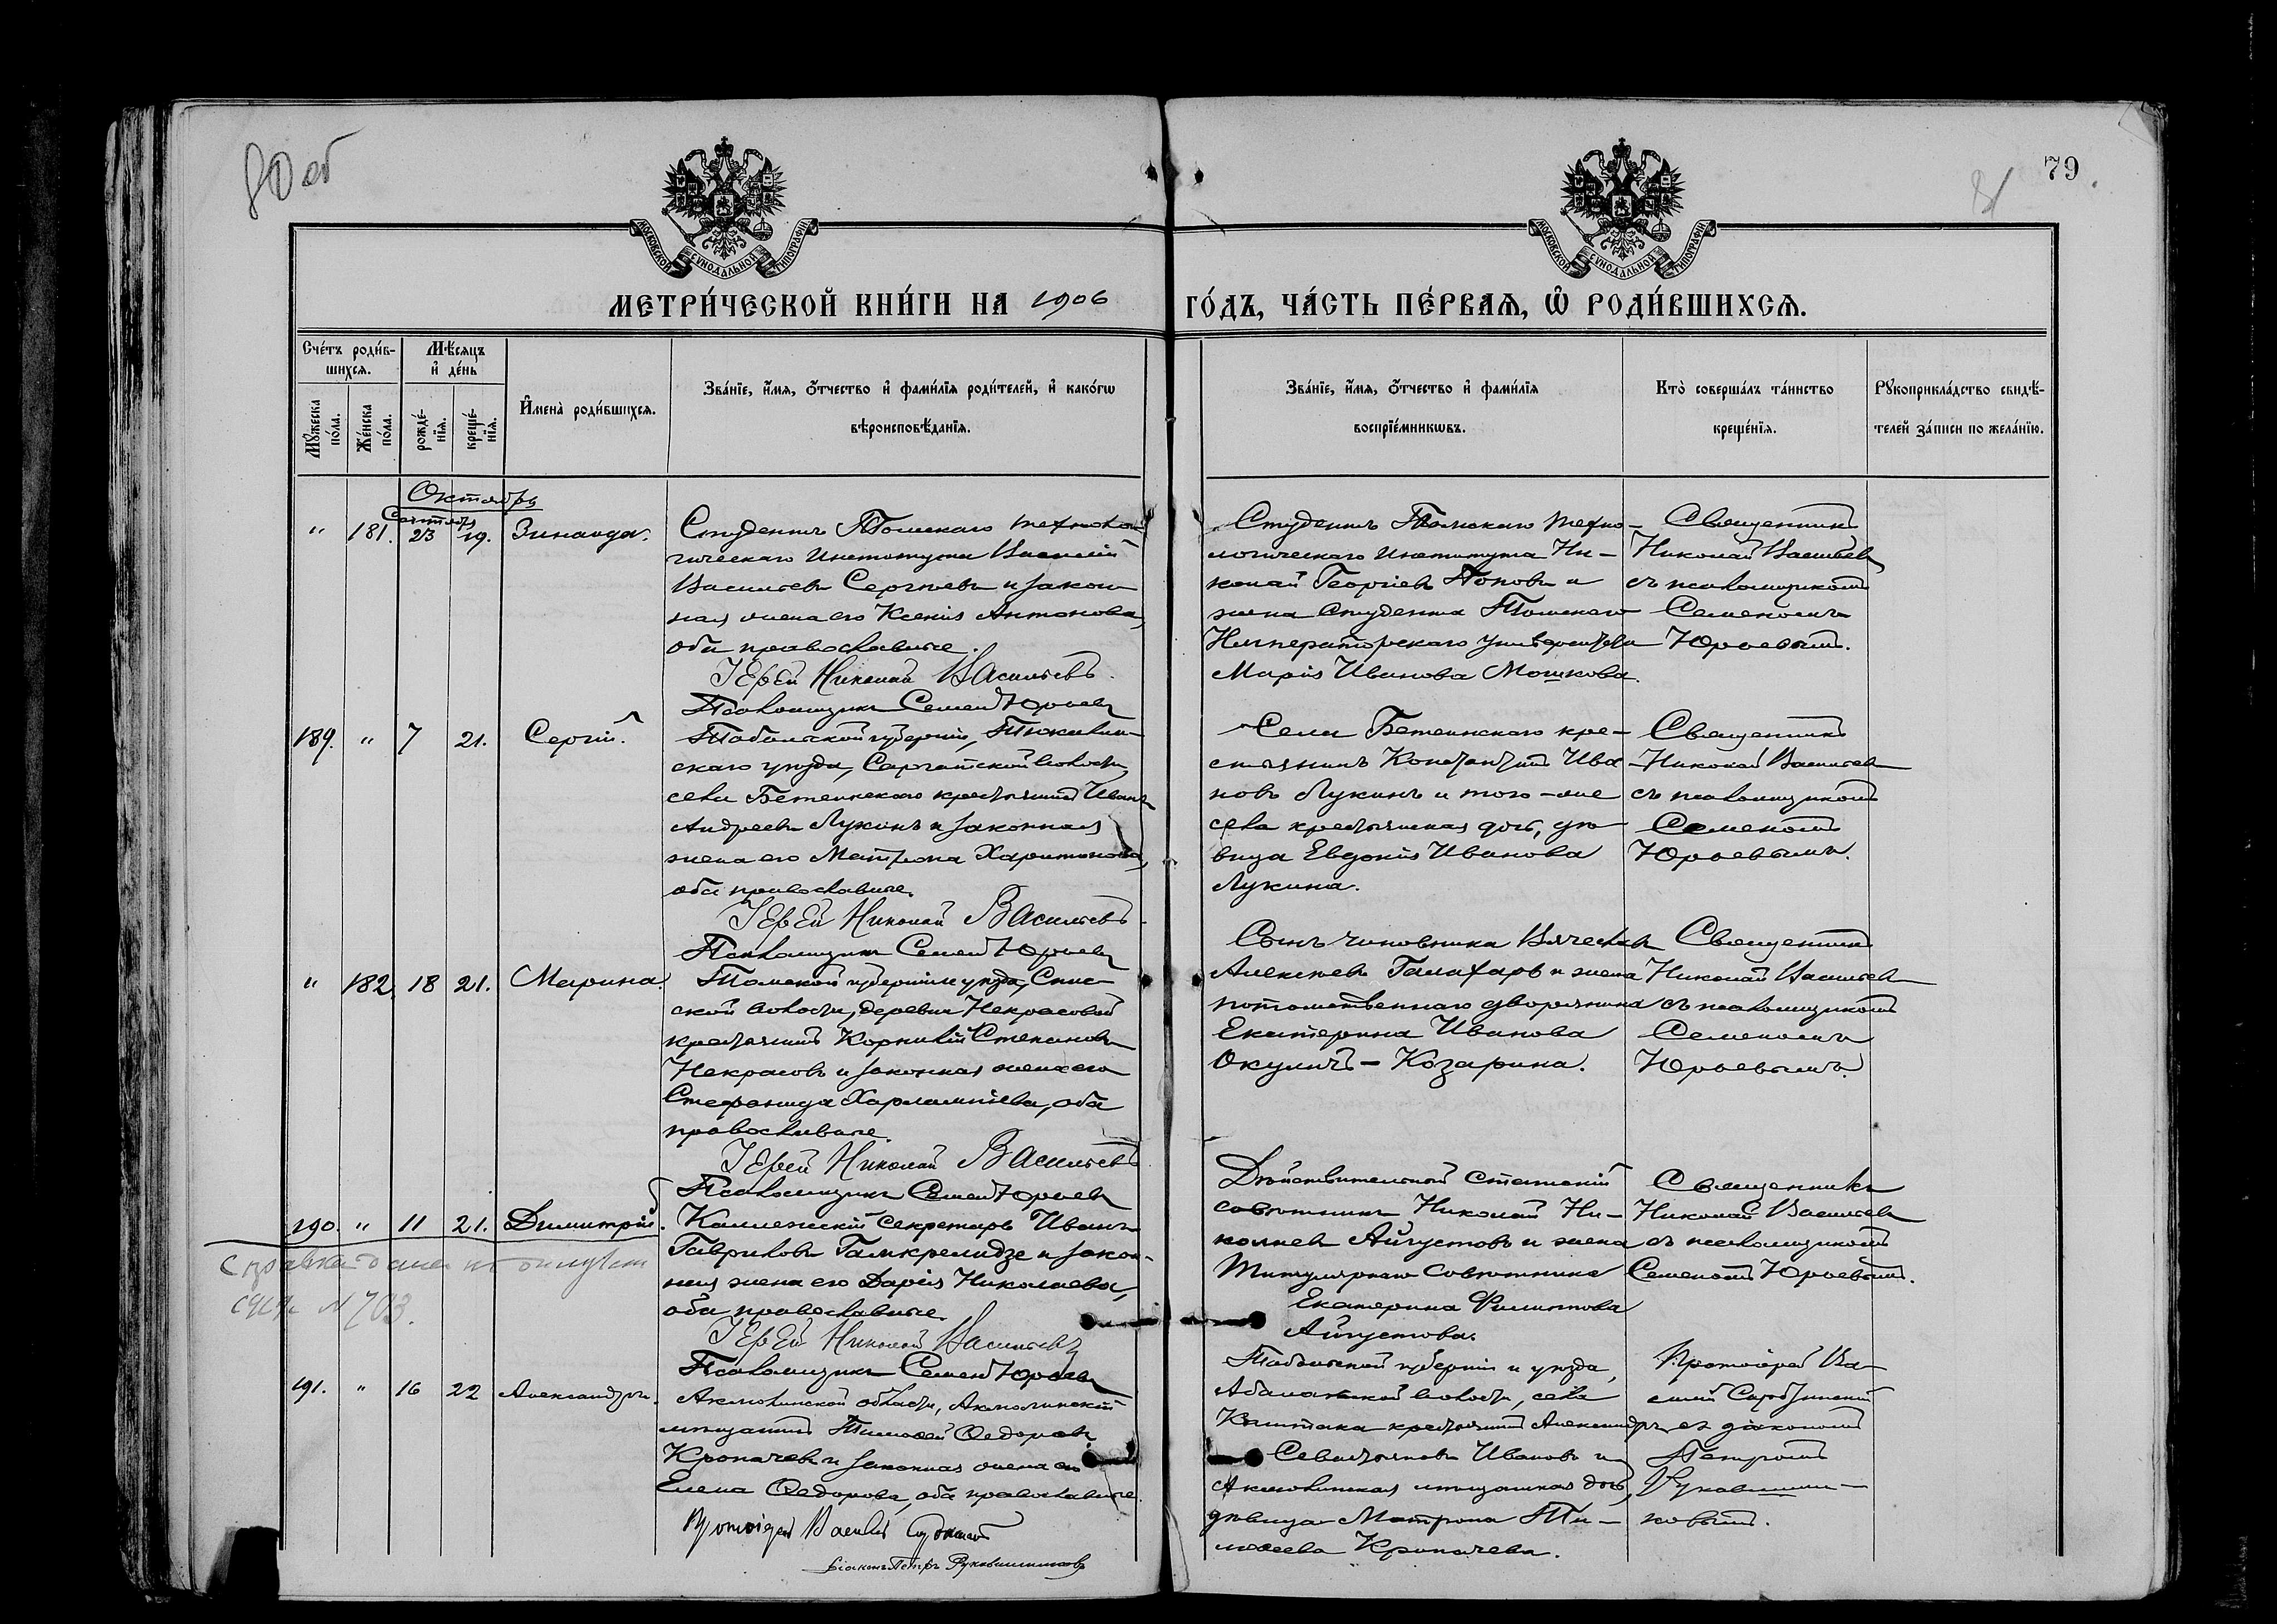 80 об
79
81
МОСКОВСКОЙ СУНОДАЛЬНОЙ ТИПОГРАФІИ
МОСКОВСКОЙ СУНОДАЛЬНОЙ ТИПОГРАФІИ
МЕТРИ́ЧЕСКОЙ КНИ́ГИ НА 1906 ГО́ДЪ, ЧА́СТЬ ПЕ́РВАЯ, Ѡ҆ РОДИ́ВШИХСЯ.
Сче́тъ роди́в-
шихся.
Мѣ́сяцъ
и҆ де́нь
Мꙋ́жеска
по́ла.
Же́нска
по́ла.
рожде́-
нїя.
креще́-
нїя.
И҆мена̀ роди́вшихся.
Зва́нїе, и҆́мя, ѻ҆́тчество и҆ фами́лїя роди́телей, и҆ како́гѡ
вѣроисповѣ́данїя.
Зва́нїе, и҆́мя, ѻ҆́тчество и҆ фами́лїя
воспрїе́мникѡвъ.
Кто̀ соверша́лъ та́инство
креще́нїя.
Рꙋкоприкла́дство свидѣ́-
телей за́писи по жела́нїю.
Октябрь
Сентябр
" 181. 23 19. Зинаида.
Студентъ Томскаго техноло-
гическаго Института Василій
Васильевъ Сергѣевъ и закон-
ная жена его Ксенія Антонова,
оба православные.
Іерей Николай Васильевъ.
Псаломщикъ Семенъ Юрьевъ
Студентъ Томскаго техно-
логическаго Института Ни-
колай Георгіевъ Поповъ и
жена студента Томскаго
Императорскаго Университета
Марія Иванова Мошкова.
Священникъ
Николай Васильевъ
съ псаломщикомъ
Семеномъ
Юрьевымъ.
189. " 7 21. Сергій.
Тобольской губерніи, Тюкалин-
скаго уѣзда, Саргатской волости,
села Бетеинскаго крестьянинъ Иванъ
Андреевъ Лукинъ и законная
жена его Матрона Харитонова,
оба православные.
Іерей Николай Васильевъ.
Псаломщикъ Семенъ Юрьевъ
Села Бетеинскаго кре-
стьянинъ Константинъ Ива-
новъ Лукинъ и того-же
села крестьянская дочь, дѣ-
вица Евдокія Иванова
Лукина.
Священникъ
Николай Васильевъ
съ псаломщикомъ
Семеномъ
Юрьевымъ.
" 182. 18 21. Марина
Томской губерніи и уѣзда, Спас-
ской волости, деревни Некрасовой
крестьянинъ Корнилій Степановъ
Некрасовъ и законная жена его
Стефанида Харлампіева, оба
православные.
Іерей Николай Васильевъ
Псаломщикъ Семенъ Юрьевъ
Сынъ чиновника Вячеславъ
Алексѣевъ и жена
потомственнаго дворянина
Екатерина Иванова
Окуличъ-Козарина.
Священникъ
Николай Васильевъ
съ псаломщикомъ
Семеномъ
Юрьевымъ.
190. " 11 21. Димитрій.
Справка дана
№ 703.
Коллежскій секретарь Иванъ
Гавриловъ Гамкрелидзе и закон-
ная жена его Дарія Николаева,
оба православные.
Іерей Николай Васильевъ
Псаломщикъ Семенъ Юрьевъ
Дѣйствительный статскій
совѣтникъ Николай Ни-
колаевъ Айгустовъ и жена
Титулярнаго Совѣтника
Екатерина Филиппова
Айгустова.
Священникъ
Николай Васильевъ
съ псаломщикомъ
Семеномъ Юрьевымъ.
191. " 16 22 Александръ.
Акмолинской области, Акмолинскій
мѣщанинъ Тимоѳей Ѳедоровъ
Кропачевъ и законная жена его
Елена Ѳедорова, оба православные.
Протоіерей Василій
Діаконъ Петръ Рукавишниковъ
Тобольской губерніи и уѣзда,
Абалакской волости, села
крестьянинъ Александръ
Севастьяновъ Ивановъ и
Акмолинская мѣщанская дочь,
дѣвица Матрона Ти-
моѳеева Кропачева.
Протоіерей Ва-
силій
съ діакономъ
Петромъ
Рукавишни-
ковымъ.